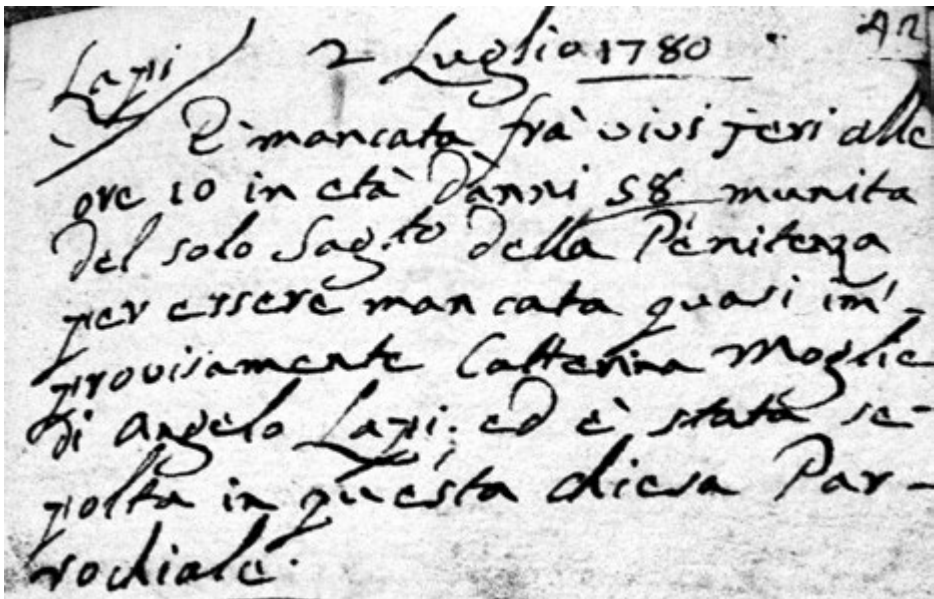 Lapi 2 Luglio 1780
È mancata frà vivi jeri alle
ore 10 in età d'anni 58 munita
del solo Sag.to della Penitenza
per essere mancata quasi im-
provisamente Catterina Moglie
di Angelo Lapi; ed è stata se-
polta in questa chiesa Par-
rochiale.